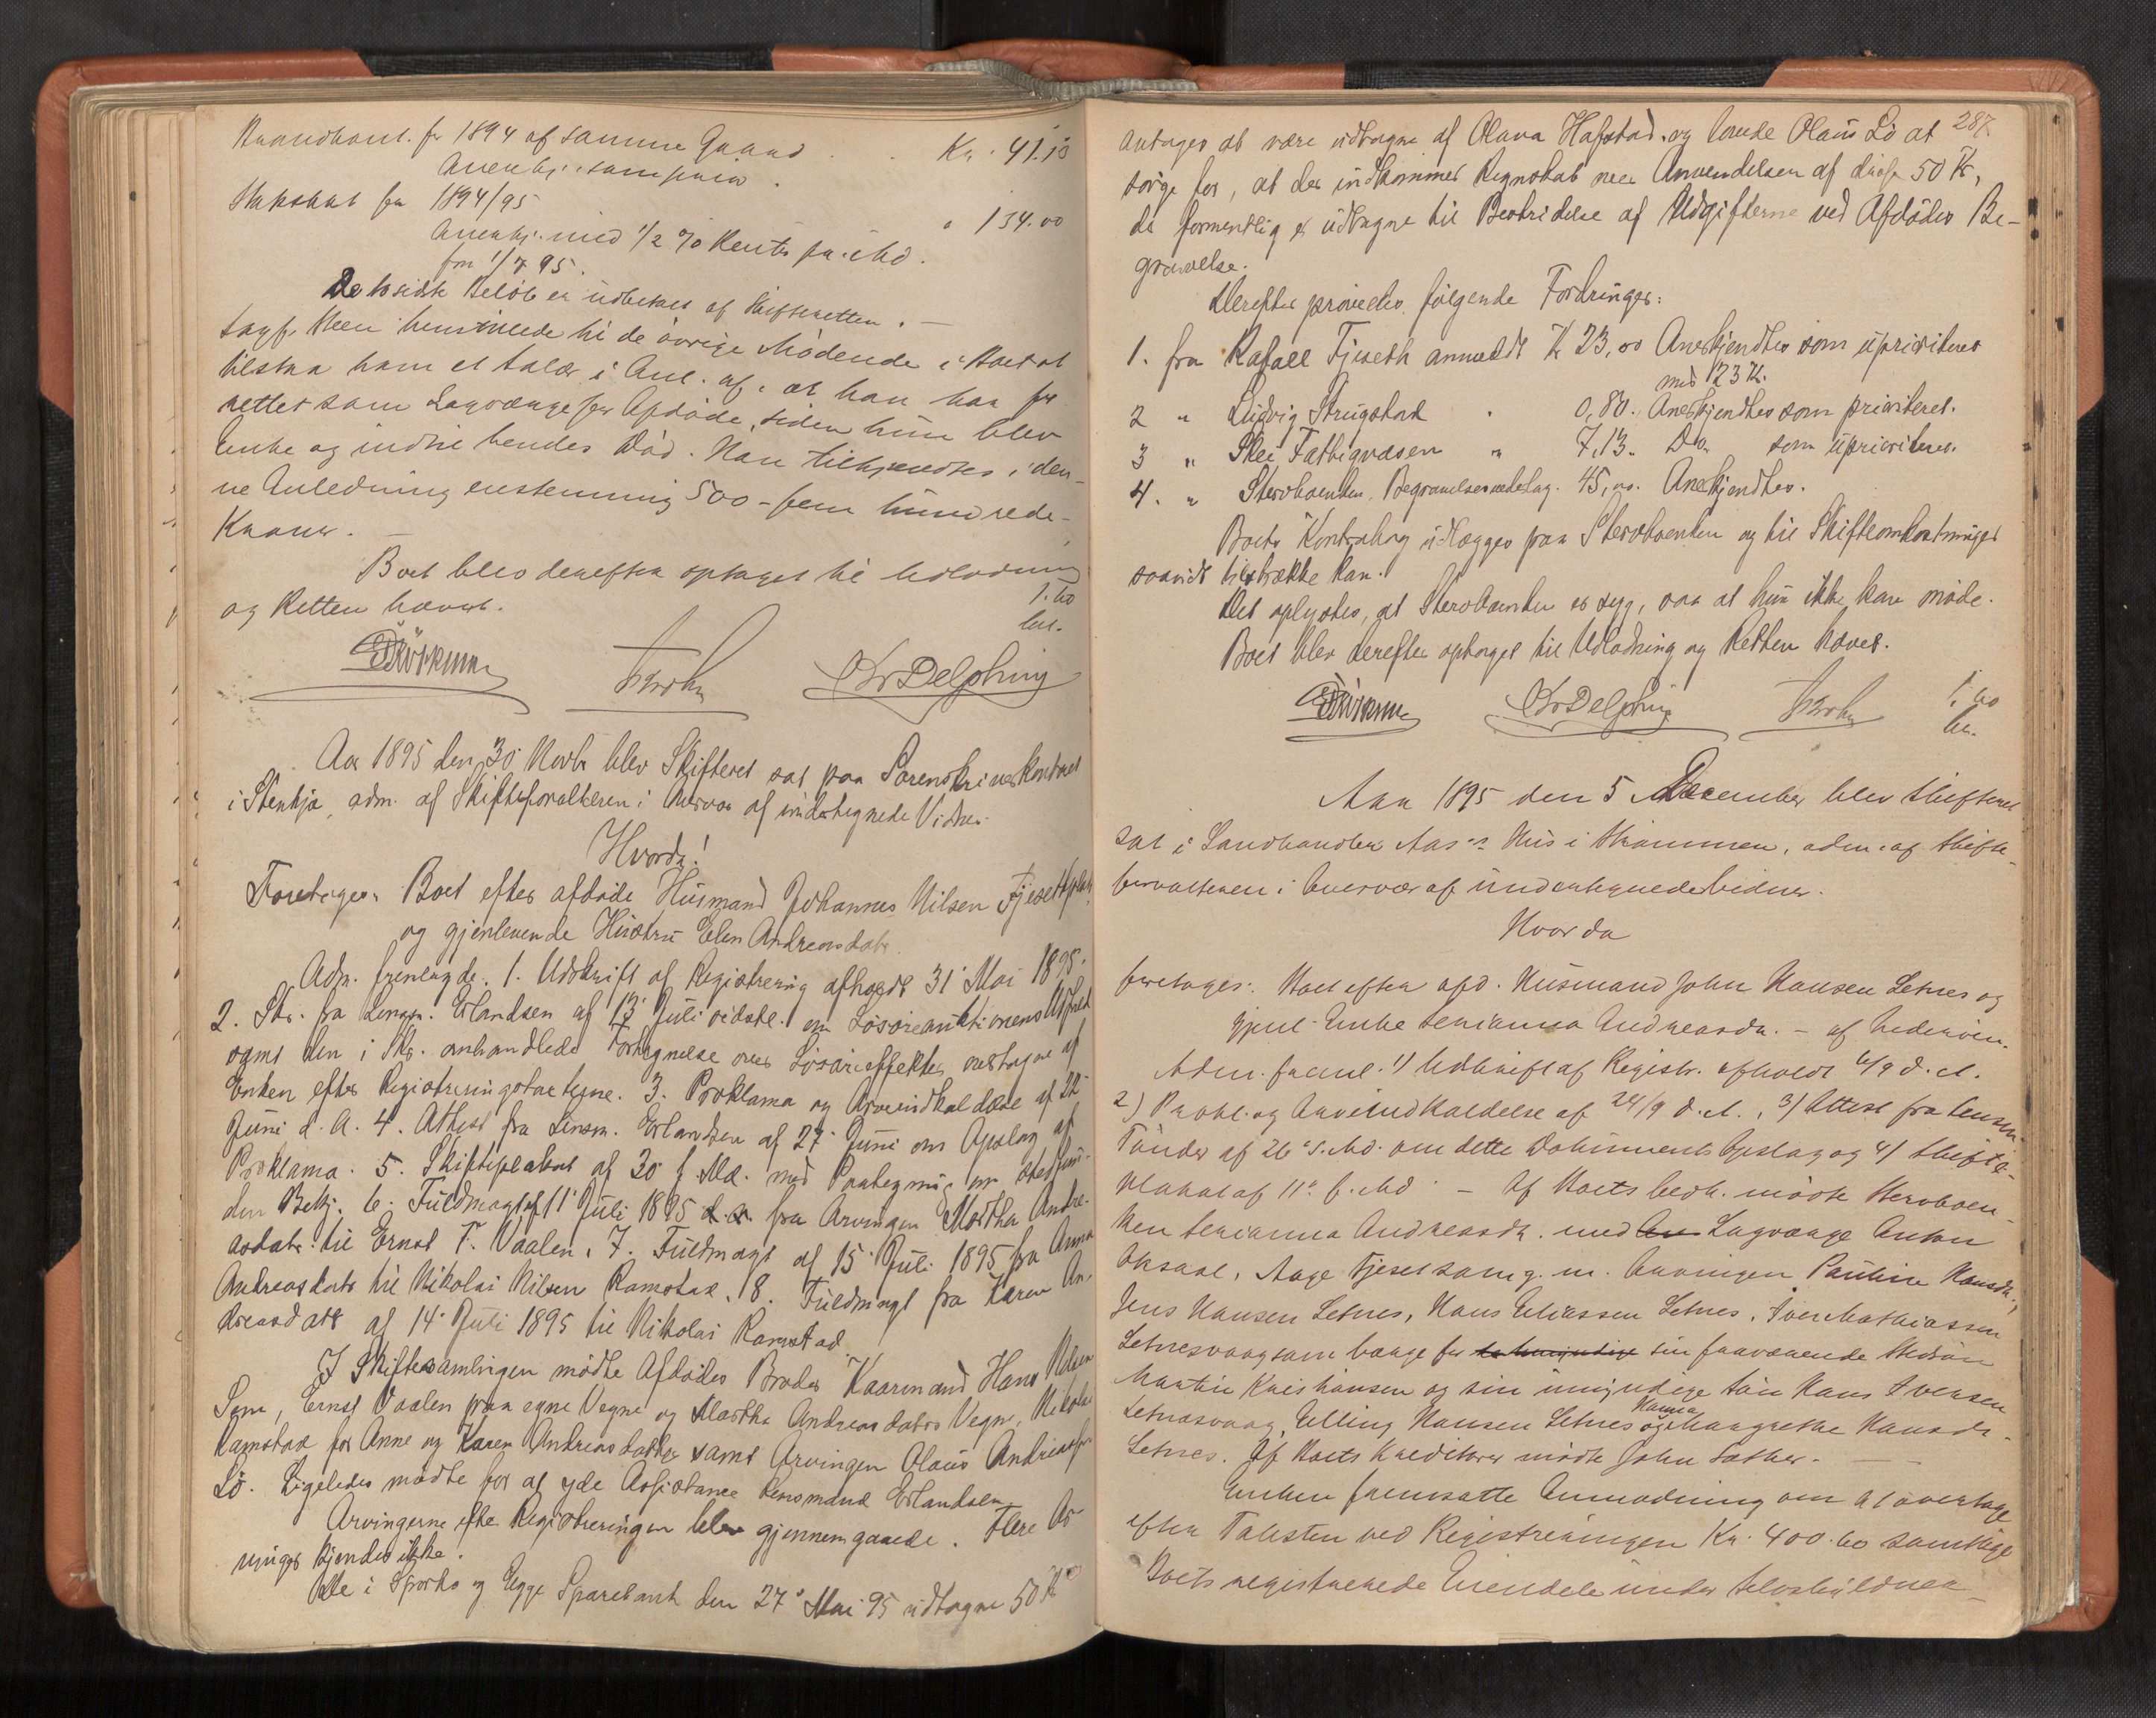 Brandkont. for 1894 af samme Gaard . . Kr. 41.13
Anerkj. som prior.
Skatskat for 1894/95 " 134.00
Anerkj. med 1/2 % Rente pr. Md.
fra 1/7 95.
De to sidste Beløb er udbetalt af Skifteretten. —
Sagf. Steen henstillede til de øvrige Mødende i Boet at
tilstaa ham et Salær i Anl. af, at han har fun-
gettet som Lagværge for Afdøde, siden hun blev
Enke og indtil hendes Død. Han tilkjendtes i den-
ne Anledning enstemmig 500 - fem hundrede -
Kroner. —
Boet blev derefter optaget til Udlodning
og Retten hævet. 1.60
Delphin
Aar 1895 den 30 Novbr blev Skifteret sat paa Sorenskriverkontoret
i Stenkjær, adm. af Skifteforvalteren i Overvær af undertegnede Vidner.
Hvorda!
Foretages: Boet efter afdøde Husmand Johannes Nilsen Fjesethplads
og gjenlevende Hustru Elen Andreasdatr.
Adm. fremlagde: 1. Udskrift af Registrering afholdt 31 Mai 1895.
2. Skr. fra Lensm. Erlandsen af 13 Juli sidstl. om Løsøreauktionens Udfald
samt den i Skr. omhandlede Fortegnelse over Løsøreeffekter overtagne af
Enken efter Registreringstaxterne. 3. Proklama og Arveindkaldelse af 22
Juni d. A. 4. Attest fra Lensm. Erlandsen af 27 Juni om Opslag af
Proklama. 5. Skifteplakat af 30 f. Md. med Paategning om stedfun-
den Bekj. 6. Fuldmagt af 11 Juli 1895 d. a. fra Arvingen Martha Andre-
asdatr. til Ernst T. Vaalen. 7. Fuldmagt af 15 Juli 1895 fra Anna
Andreasdatr til Nikolai Nilsen Ramstad. 8. Fuldmagt fra Karen An-
dreasdatr af 14 Juli 1895 til Nikolai Ramstad.
I Skiftesamlingen mødte Afdødes Broder Kaarmand Hans Nilsen
Sem, Ernst Vaalen paa egne Vegne og Martha Andreasdatrs Vegne, Nikolai
Ramstad for Anne og Karen Andreasdatter samt Arvingen Olaus Andreassen
Lø. Ligeledes mødte for at yde Assistance Lensmand Erlandsen
Arvingerne efter Registreringen blev gjennemgaaede. Flere Ar-
vinger kjendes ikke.
De i Sparbo og Egge Sparebank den 27 Mai 95 udtagne 50 Kr
287.
antages at være udtagne af Olava Hafstad og lovede Olaus Lø at
sørge for, at der indkommer Regnskab over Anvendelsen af disse 50 Kr,
de formentlig er udtagne til Bestridelse af Udgifterne ved Afdødes Be-
gravelse.
Derefter prøvedes følgende Fordringer:
1. fra Rafael Fjeseth anmeldt Kr 23,00 Anerkjendtes som uprioriteret
med 23 Kr.
2 " Ludvig Strugstad " 0,80. Anerkjendtes som prioriteret.
3 " Skei Fattigvæsen " 7,13. Do som uprioriteret.
4. " Stervboenken, Begravelsesudlæg. 45,00. Anerkjendtes.
Boets Kontrabog udlægges paa Stervboenken og til Skifteomkostninger
saavidt tilstrække kan.
Det oplystes, at Stervboenken er syg, saa at hun ikke kan møde.
Boet blev derefter optaget til Udlodning og Retten hævet.
Delphin 1.60
Aar 1895 den 5 December blev Skifteret
sat i Landhandler Aas's Hus i Strømmen, adm. af Skifte-
forvalteren i Overvær af undertegnede Vidner.
Hvorda
foretages: Boet efter afd. Husmand John Hansen Letnes og
gjenl. Enke Serianna Andreasdr. — af Inderøen.
Adm. freml. 1) Udskrift af Registr. afholdt 4/9 d. A.
2) Prokl. og Arveindkaldelse af 24/9 d. A., 3) Attest fra Lensm.
Tønder af 26 s. Md. om dette Dokuments Opslag og 4) Skifte-
plakat af 11 f. Md. — Af Boets Vedk. mødte Stervboen-
ken Serianna Andreasdr. med Lagværge Anton
Aksael, Aage Fjesel samt m. Arvingen Pauline Hansdr.,
Jens Hansen Letnes, Hans Eliassen Letnes, Iver Mathiassen
Letnesvaag som Værge for sin fraværende Stedsøn
Martin Kristiansen og sin umyndige Søn Hans Iversen
Letnesvaag, Elling Hansen Letnes og Hanna Margrethe Hansdr.
Letnes. Af Boets Kreditorer mødte John Sather. —
Enken fremsatte Anmodning om at overtage
efter Taksten ved Registreringen Kr. 400.60 samtlige
Boets registrerede Eiendele under Selvskyldner-